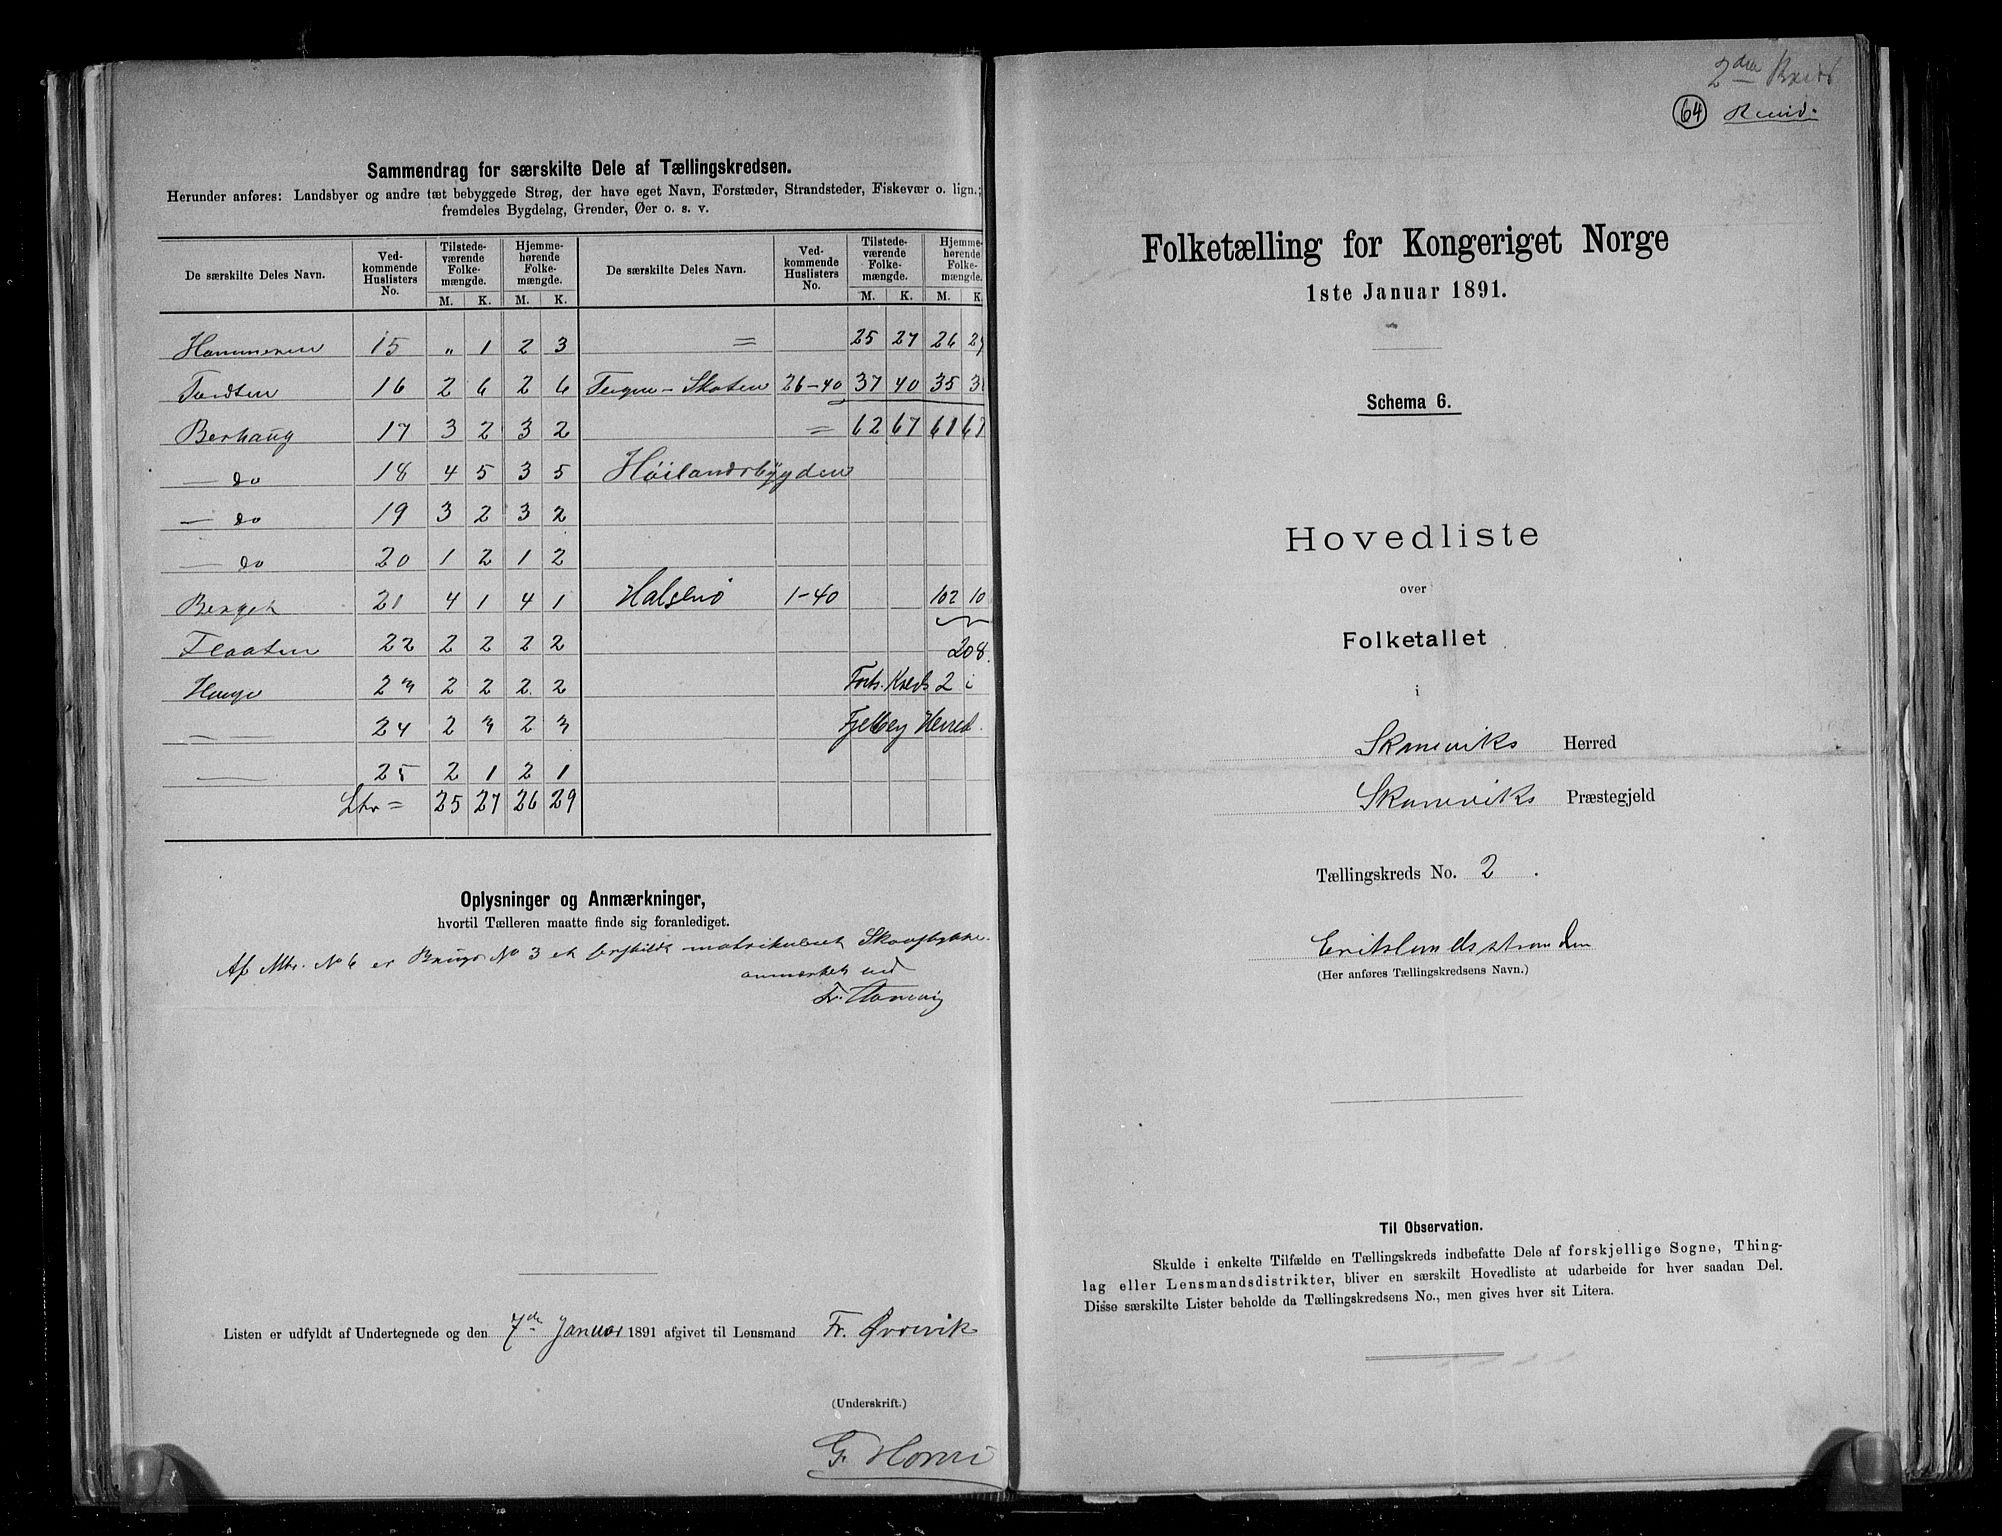 Sammendrag for særskilte Dele af Tællingskredsen.
Herunder anføres: Landsbyer og andre tæt bebyggede Strøg, der have eget Navn, Forstæder, Strandsteder, Fiskevær o. lign.;
fremdeles Bygdelag, Grender, Øer o. s. v.
De særskilte Deles Navn. Ved-kommende Huslisters No. Tilstede-værende Folke-mængde. Hjemme-hørende Folke-mængde. De særskilte Deles Navn. Ved-kommende Huslisters No. Tilstede-værende Folke-mængde. Hjemme-hørende Folke-mængde.
M. K. M. K. M. K. M. K.
Hammeren 15 " 1 2 3 = 25 27 26 29
16 2 6 2 6 26-40 37 40 35 3
Berhaug 17 3 2 3 2 = 62 67 61 67
— do 18 4 5 3 5 Høilandsbygden
— do 19 3 2 3 2
— do 20 1 2 1 2
Berget 21 4 1 4 1 Halsenø 1-40 102 10
Flaaten 22 2 2 2 2 208.
Hauge 23 2 2 2 2 Forts. Kreds 2 i
— — 24 2 3 2 3 Fjelberg Herred.
—— 25 2 1 2 1
= 25 27 26 29
Oplysninger og Anmærkninger,
hvortil Tælleren maatte finde sig foranlediget.
Af Mtr. No 6 er Brugs No 3 et matrikuleret
anmærket ved
Fr.
Listen er udfyldt af Undertegnede og den 7de Januar 1891 afgivet til Lensmand Fr.
(Underskrift.)
G.
2den
64
Folketælling for Kongeriget Norge
1ste Januar 1891.
Schema 6.
Hovedliste
over
Folketallet
i
Skaneviks Herred
Skaneviks Præstegjeld
Tællingskreds No. 2.
Eritslandsstranden
(Her anføres Tællingskredsens Navn.)
Til Observation.
Skulde i enkelte Tilfælde en Tællingskreds indbefatte Dele af forskjellige Sogne, Thing-
lag eller Lensmandsdistrikter, bliver en særskilt Hovedliste at udarbeide for hver saadan Del.
Disse særskilte Lister beholde da Tællingskredsens No., men gives hver sit Litera.